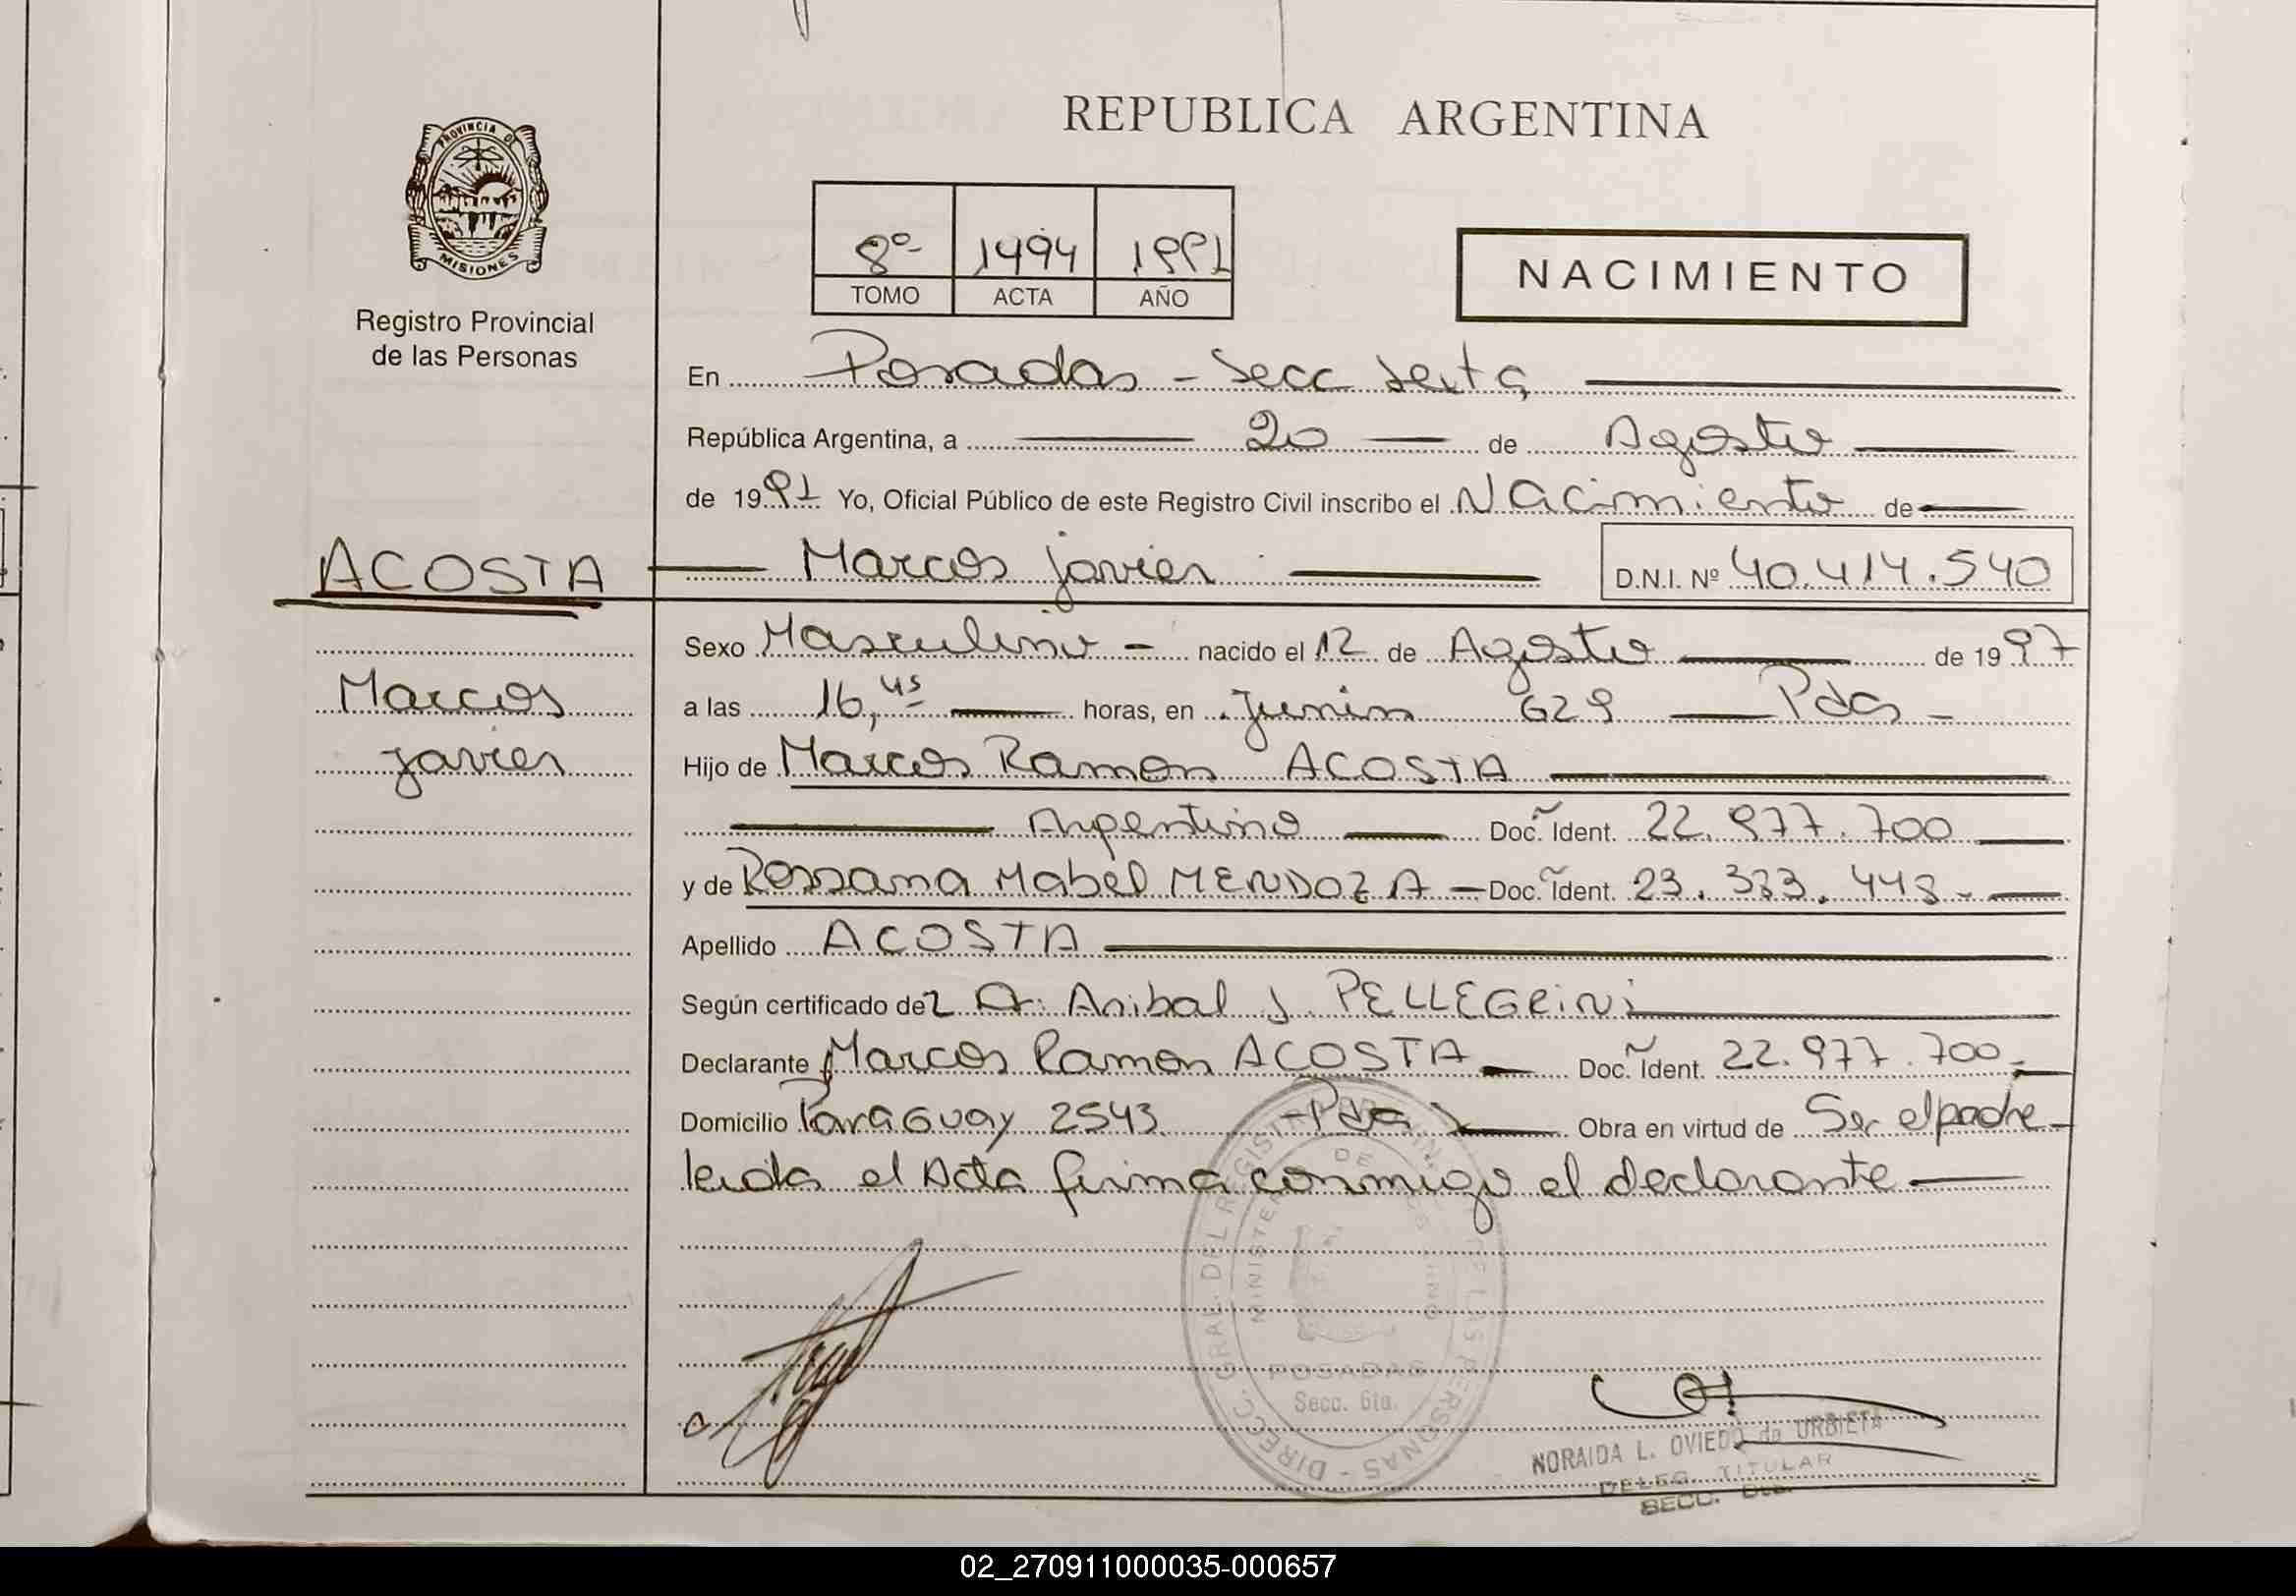 REPUBLICA ARGENTINA
PROVINCIA DE
MISIONES
Registro Provincial
de las Personas
8º 1494 1997
TOMO ACTA AÑO
NACIMIENTO
En Posadas - Secc Sexta
República Argentina, a 20 de Agosto
de 1997 Yo, Oficial Público de este Registro Civil inscribo el Nacimiento de
ACOSTA Marcos Javier D.N.I. Nº 40.414.540
Marcos
Javier
Sexo Masculino - nacido el 12 de Agosto de 1997
a las 16,45 horas, en Junin 629 Pdas -
Hijo de Marcos Ramon ACOSTA
Argentino Doc. Ident. 22.977.700
y de Rossana Mabel MENDOZA Doc. Ident. 23.383.448
Apellido ACOSTA
Según certificado de Anibal J. PELLEGRiNi
Declarante Marcos Ramon ACOSTA Doc. Ident. 22.977.700
Domicilio Paraguay 2543 Pdas Obra en virtud de Ser el padre
leida el Acta firma conmigo el declarante
DIRECC. GRAL. DEL REGISTRO PROVIN. DE LAS PERSONAS
MINISTERIO DE GOBIERNO
POSADAS
Secc. 6ta.
NORAIDA L. OVIEDO de URBIETA
DELEG. TITULAR
SECC. 6ta.
02_270911000035-000657